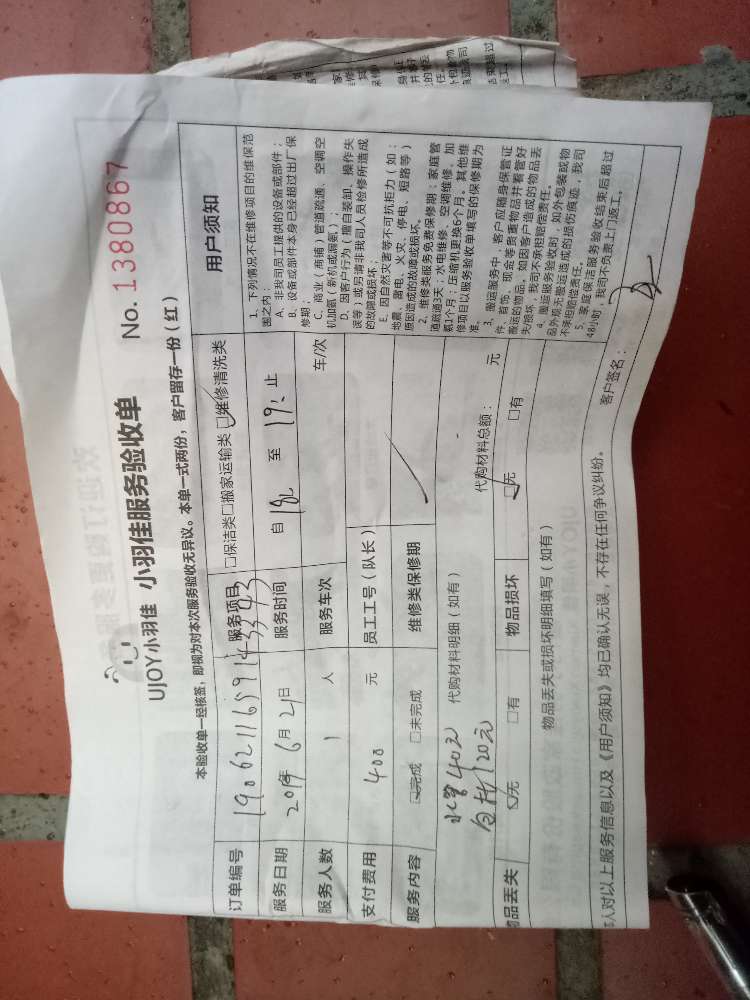 UJOY小羽佳 小羽佳服务验收单 No. 1380867
本验收单一经核签，即视为对本次服务验收无异议。本单一式两份，客户留存一份（红）
订单编号 服务项目 □保洁类□搬家运输类☑维修清洗类
服务日期 2019年6月21日 服务时间 自 至 19: 止
服务人数 1 人 服务车次 车/次
支付费用 400 元 员工工号（队长）
服务内容 ☑完成 □未完成 维修类保修期
40元 代购材料明细（如有）
120元 代购材料总额： 元
物品丢失 ☑无 □有 物品损坏 ☑无 □有
物品丢失或损坏明细填写（如有）
用户须知
1、下列情况不在维修项目的维保范
围之内：
A、非我司员工提供的设备或部件；
B、设备或部件本身已经超过出厂保
修期；
C、商业（商铺）管道疏通、空调空
机加氨（新机或漏氨）；
D、因客户行为（擅自装卸、操作失
误等）或另请非我司人员检修所造成
的故障或损坏；
E、因自然灾害等不可抗拒力（如：
地震、雷电、火灾、停电、短路等）
原因造成的故障或损坏。
2、维修类服务免费保修期：家庭管
道疏通3天；水电维修、空调维修、加
氨1个月；压缩机更换6个月。其他维
修项目以服务验收单填写的保修期为
准。
3、搬运服务中，客户应随身保管证
件、首饰、现金等贵重物品并看管好
搬运的物品，如因客户造成的物品丢
失/损坏，我司不承担赔偿责任。
4、搬运服务验收时，如外包装或物
品外表无搬运造成的损伤痕迹，我司
不承担赔偿责任。
5、家庭保洁服务验收结束后超过
48小时，我司不负责上门返工。
本人对以上服务信息以及《用户须知》均已确认无误，不存在任何争议纠纷。 客户签名：